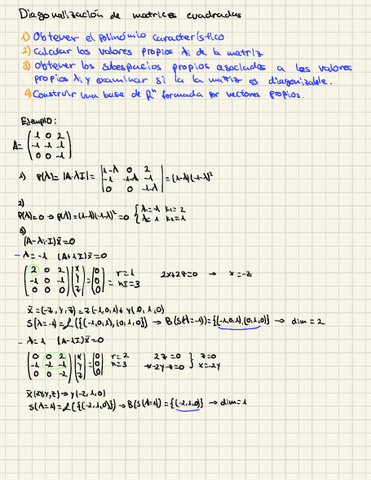 Diagonalización de matrices cuadradas
1) Obtener el polinomio característico
2) Calcular los valores propios λi de la matriz
3) Obtener los subespacios propios asociados a los valores
propios λi y examinar si la la matriz es diagonizable.
4) Construir una base de Rⁿ formada por vectores propios.
Ejemplo:
A= (1 0 2
-1 -1 -1
0 0 -1)
1) P(λ)= |A-λI| = |1-λ 0 2
-1 -1-λ -1
0 0 -1-λ| = (1-λ)(-1-λ)²
2)
P(λ)=0 → p(λ)=(1-λ)(-1-λ)²=0 { λ1=-1 k1=2
λ2=1 k2=1
3)
(A-λi·I)x̄=0
- λ=-1 (A+1I)x̄=0
(2 0 2
-1 0 -1
0 0 0) (x
y
z) = (0
0
0) r=1
n=3 2x+2z=0 → x=-z
x̄=(-z, y, z)= z(-1,0,1)+y(0,1,0)
S(λ=-1)=L({(-1,0,1),(0,1,0)} → B(S(λ=-1))={(-1,0,1)(0,1,0)} → dim=2
- λ=1 (A-1I)x̄=0
(0 0 2
-1 -2 -1
0 0 -2) (x
y
z) = (0
0
0) r=2
n=3 2z=0
-x-2y-z=0 } z=0
x=-2y
→ y(-2,1,0)
S(λ=1)=L({(-2,1,0)}) → B(S(λ=1))={(-2,1,0)} → dim=1